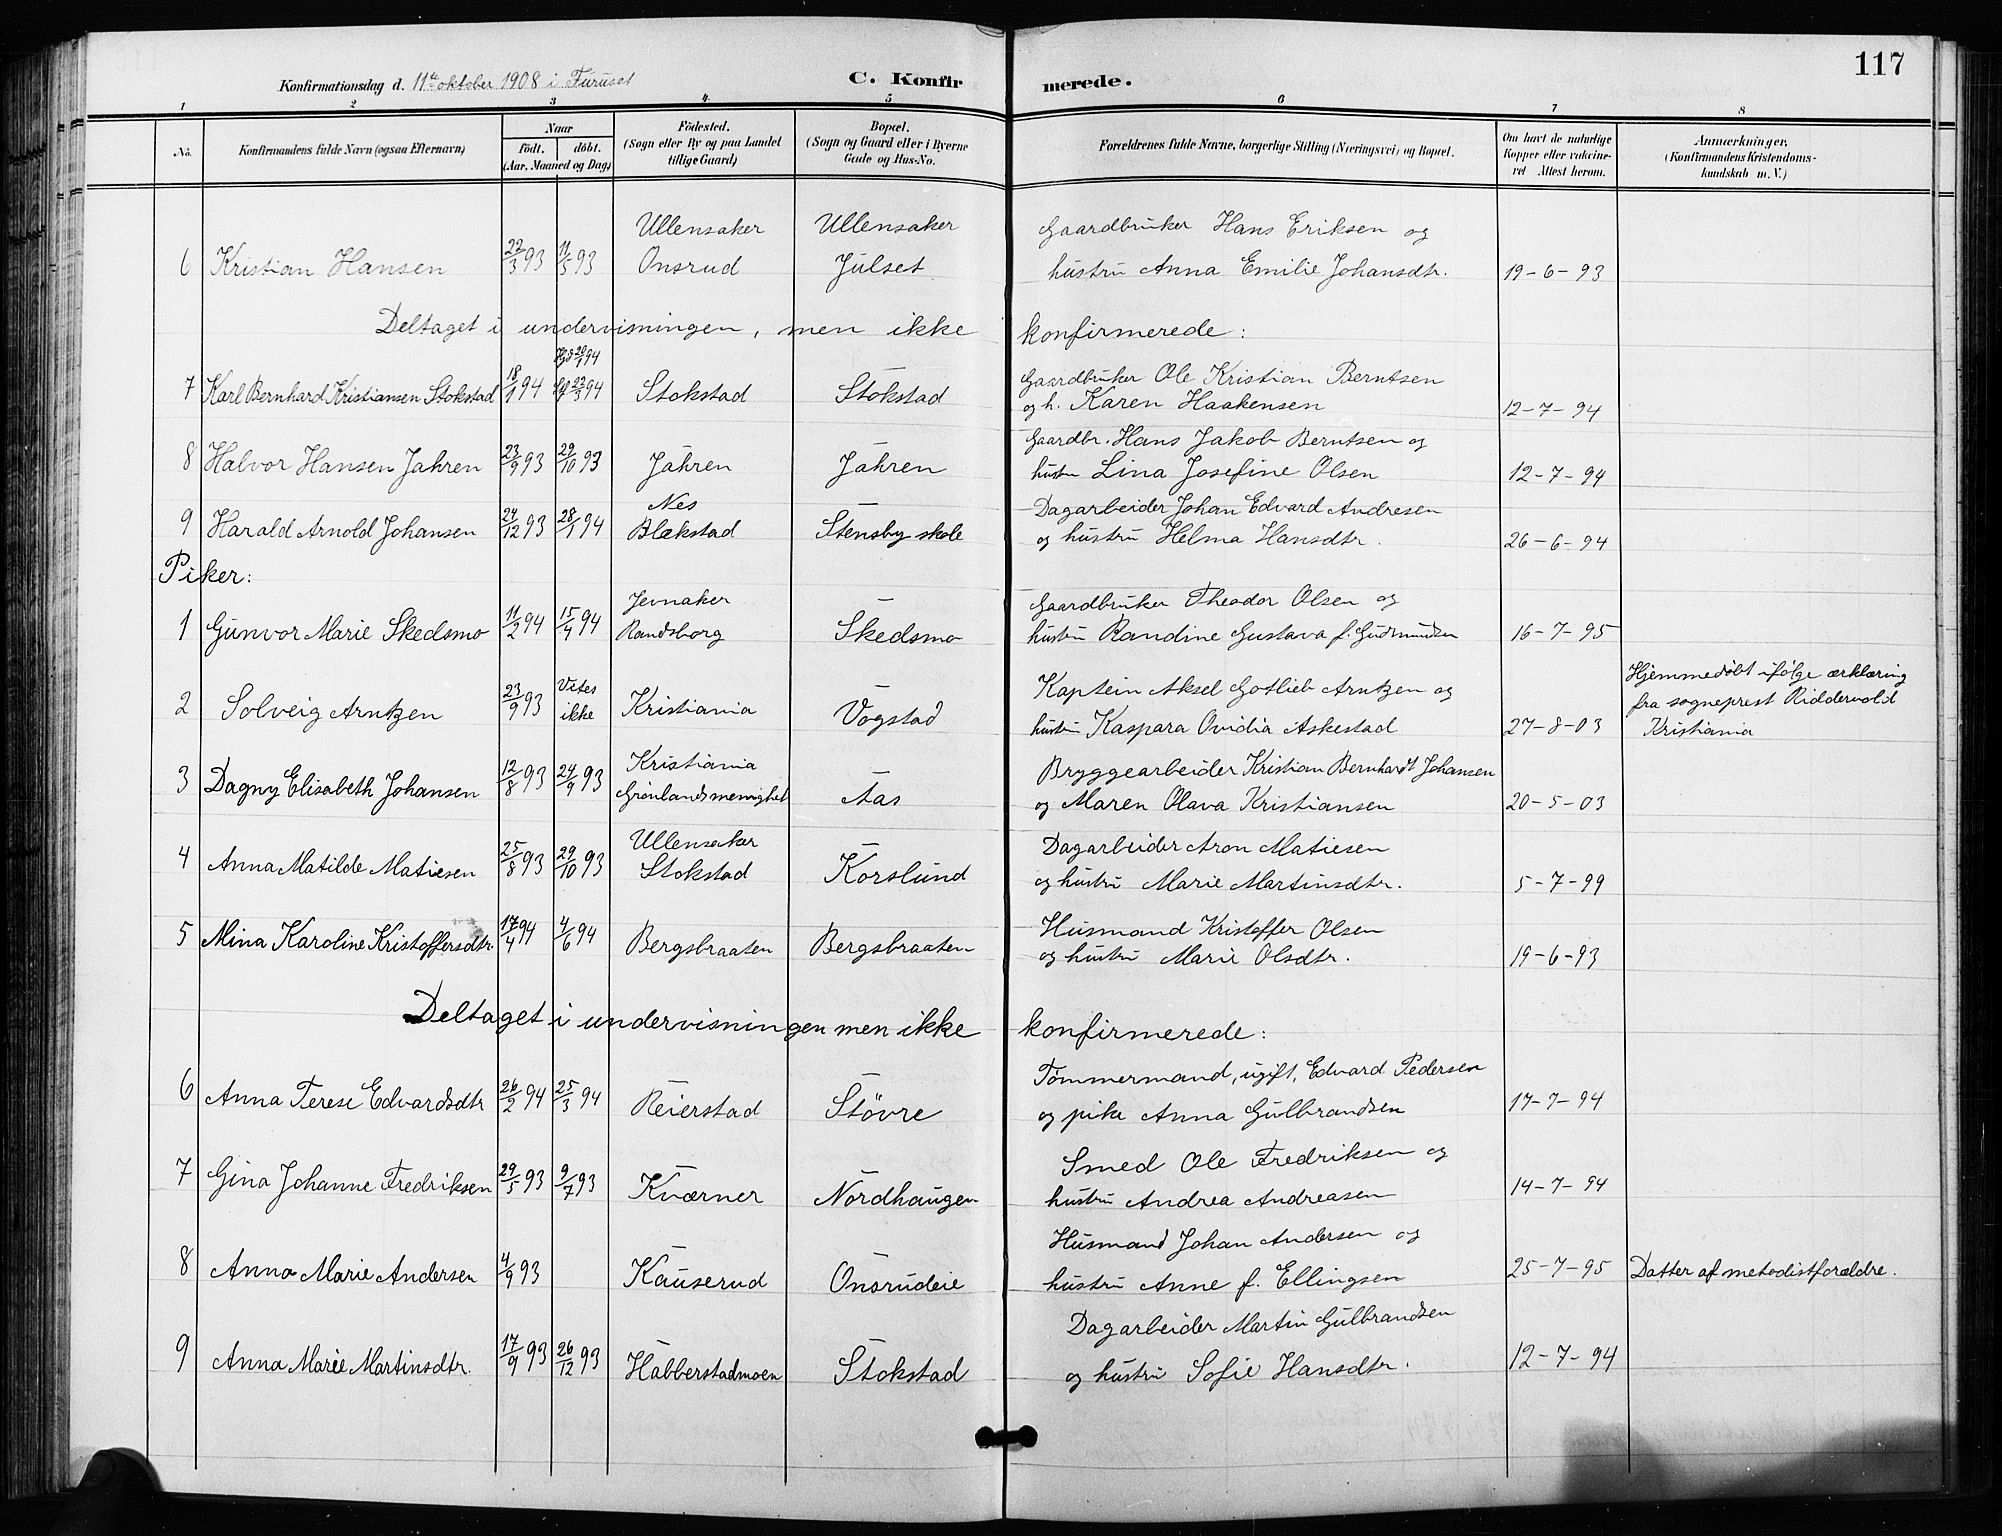 117
Konfirmationsdag d. 11te oktober 1908 i Furuset C. Konfirmerede.
1 2 3 4 5 6 7 8
No. Konfirmandens fulde Navn (ogsaa Efternavn) Naar födt. döbt. (Aar, Maaned og Dag) Födested. (Sogn eller By og paa Landet tillige Gaard) Bopæl. (Sogn og Gaard eller i Byerne Gade og Hus-No.) Forældrenes fulde Navne, borgerlige Stilling (Næringsvei) og Bopæl. Om havt de naturlige Kopper eller vakcineret Attest herom. Anmærkninger. (Konfirmandens Kristendomskundskab m. V.)
Ullensaker Ullensaker Gaardbruker Hans Eriksen og
6 Kristian Hansen 22/3 93 11/5 93 Onsrud Julset hustru Anna Emilie Johansdtr. 19-6-93
Deltaget i undervisningen, men ikke konfirmerede:
Hjd 20/1 94 Gaardbruker Ole Kristian Berntsen
7 Karl Bernhard Kristiansen Stokstad 18/1 94 23/3 94 Stokstad Stokstad og h. Karen Haakensen 12-7-94
Gaardbr. Hans Jakob Berntsen og
8 Halvor Hansen Jahren 23/9 93 29/10 93 Jahren Jahren hustru Lina Josefine Olsen 12-7-94
Nes Dagarbeider Johan Edvard Andresen
9 Harald Arnold Johansen 24/12 93 28/1 94 Blækstad Stensby skole og hustru Helma Hansdtr. 26-6-94
Piker:
Jevnaker Gaardbruker Theodor Olsen og
1 Gunvor Marie Skedsmo 11/2 94 15/4 94 Randsborg Skedsmo hustru Randine Gustava f. Gudmundsen 16-7-95
Vites Kaptein Aksel Gotlieb Arntzen og Hjemmedøbt ifølge erklæring
2 Solveig Arntzen 23/9 93 ikke Kristiania Vogstad hustru Kaspara Ovidia Askestad 27-8-03 fra sogneprest Riddervold
Kristiania
Kristiania Bryggearbeider Kristian Bernhardt Johansen
3 Dagny Elisabeth Johansen 12/8 93 24/9 93 Grønlandsmenighet Aas og Maren Olava Kristiansen 20-5-03
Ullensaker Dagarbeider Aron Matiesen
4 Anna Matilde Matiesen 25/8 93 29/10 93 Stokstad Korslund og hustru Marie Martinsdtr. 5-7-99
Husmand Kristoffer Olsen
5 Mina Karoline Kristoffersdtr. 17/4 94 4/6 94 Bergsbraaten Bergsbraaten og hustru Marie Olsdtr. 19-6-93
Deltaget i undervisningen men ikke konfirmerede:
Tømmermand, ugift, Edvard Pedersen
6 Anna Terese Edvardsdtr 26/2 94 25/3 94 Reierstad Støvre og pike Anna Gulbrandsen 17-7-94
Smed Ole Fredriksen og
7 Gina Johanne Fredriksen 29/5 93 9/7 93 Kværner Nordhaugen hustru Andrea Andreasen 14-7-94
Husmand Johan Andersen og
8 Anna Marie Andersen 4/9 93 Kauserud Onsrudeie hustru Anne f. Ellingsen 25-7-95 Datter af metodistforældre.
Dagarbeider Martin Gulbrandsen
9 Anna Marie Martinsdtr. 17/9 93 26/12 93 Habberstadmoen Stokstad og hustru Sofie Hansdtr. 12-7-94